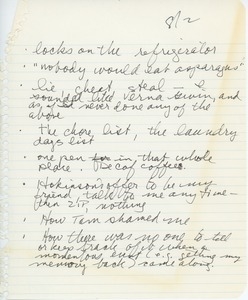 8/2
· locks on the refrigerator
· "nobody would eat asparagus"
· lie, cheat, steal – I
sounded like Verna Gwinn, and
as if I'd never done any of the
above
· The chore list, the laundry
days list
· one pen in that whole
place. Decaf coffee.
· Hopkinson's offer to be my
friend, talk to me any time –
then zip, nothing
· How Tom shamed me
· How there was no one to tell
or keep track of it when a
momentous event (i.e. getting my
memory back) came along.